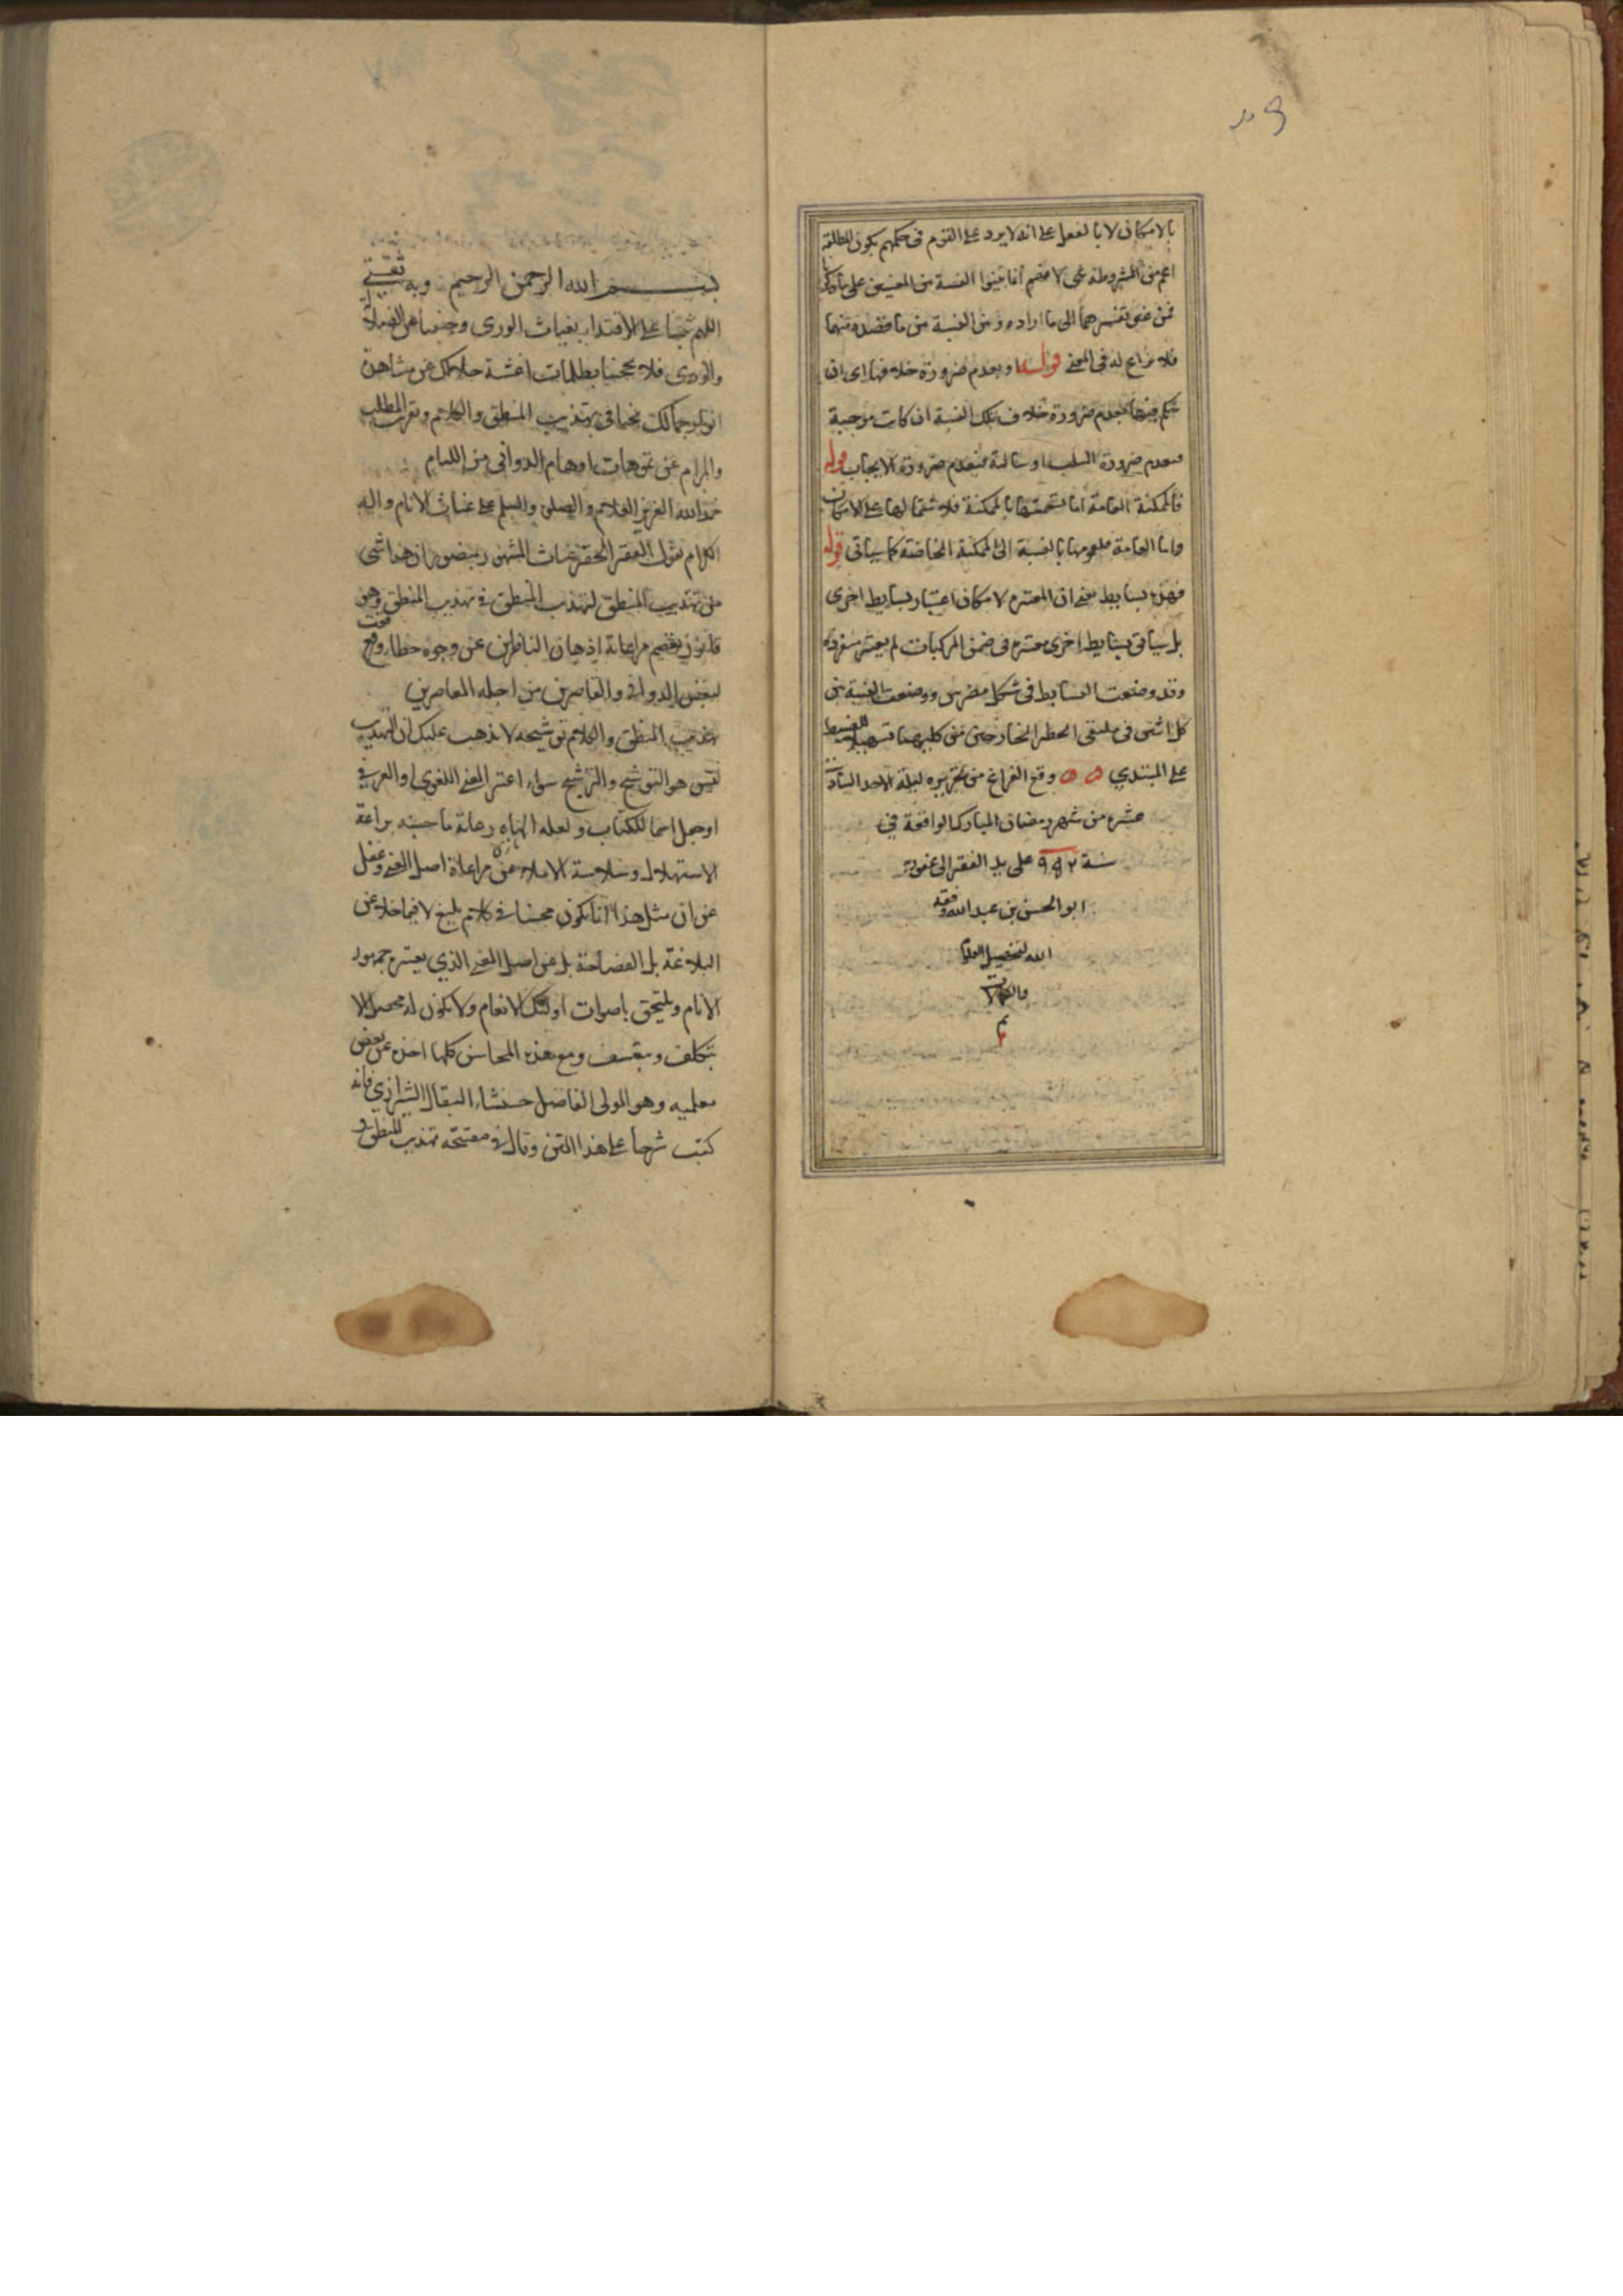 بالامكان لا بالفعل على انه لا يرد على القوم في حكمهم بكون المطلقة
اعم من المشروطة
فمن غير تفسيرهما الى ما اراده وبين النسبة بين ما قصده منهما
فلا نزاع له في المعنى قوله او بعدم ضرورة خلافها اى ان
حكم فيها بعدم ضرورة خلاف تلك النسبة ان كانت موجبة
فبعدم ضرورة السلب او سالبة فبعدم ضرورة الايجاب قوله
فالممكنة العامة اما تسميتها بالممكنة فلاشتمالها على الامكان
واما العامة فلعمومها بالنسبة الى الممكنة الخاصة كما سياتى قوله
فهذه بسايط معنى ان المعتبره لا مكان اعتبار بسايط اخرى
بل سياتى بسايط اخرى معتبره فى ضمن المركبات لم يعتبر منفردة
وقد وضعت البسايط فى شكل مضرس ووضعت النسبة بين
كل اثنين فى ملتقى الخطين الخارجين من كليهما تسهيلا للضبط
على المبتدي وقع الفراغ من تحريره ليلة الاحد السادس
عشره من شهر رمضان المبارك الواقعة في
سنة ٩٩٢ على يد الفقير الى عفوه
ابو الحسن بن عبد الله وفقه
الله لتحصيل العلم
والكمالات
تم
بسم الله الرحمن الرحيم وبه ثقتي
اللهم ثبتنا على الاقتداء بغياث الورى وجنبنا عن الضلالة
والردى فلا تحجبنا بظلمات اغشية جلالك عن مشاهدة
انوار جمالك نحيا فى تهذيب المنطق والكلام وتقريب المطلب
والمرام عن توهمات اوهام الدوانى من اللئام
حمد الله العزيز العلام والصلوة والسلم على غياث الانام واله
الكرام يقول الفقير الحقير غياث المشهور بمنصور ان هذا شى
من تهذيب المنطق لتهذيب المنطق فى تهذيب المنطق وهو
قانون يعصم مراعاته اذهان الناظرين عن وجوه خطا وقع
لبعض الدوانى والقاصرين من اجلة المعاصرين
تهذيب المنطق والكلام توشيحه لا يذهب عليك ان التهذيب
ليس هو التوشيح والترشيح سواء اعتبر المعنى اللغوى او العرفي
او جعل اسما للكتاب ولعله الهاه رعاية ما حسبه براعة
الاستهلال وسلاسة الاملاء عن مراعاة اصل المعنى وغفل
عن ان مثل هذا انما يكون محسنا فى كلام بليغ لا فيما خلا عن
البلاغة بل الفصاحة بل عن اصل المعنى الذي يعتبره جمهور
الانام ويلتحق باصوات اولئك الانعام ولا يكون له محصل الا
بتكلف وتعسف ومع هذه المحاسن كلها اخذه عن بعض
معلميه وهو المولى الفاضل حسنشاه البقال الشيرازي فانه
كتب شرحا على هذا المتن وقال فى مفتتحه تهذيب المنطق و